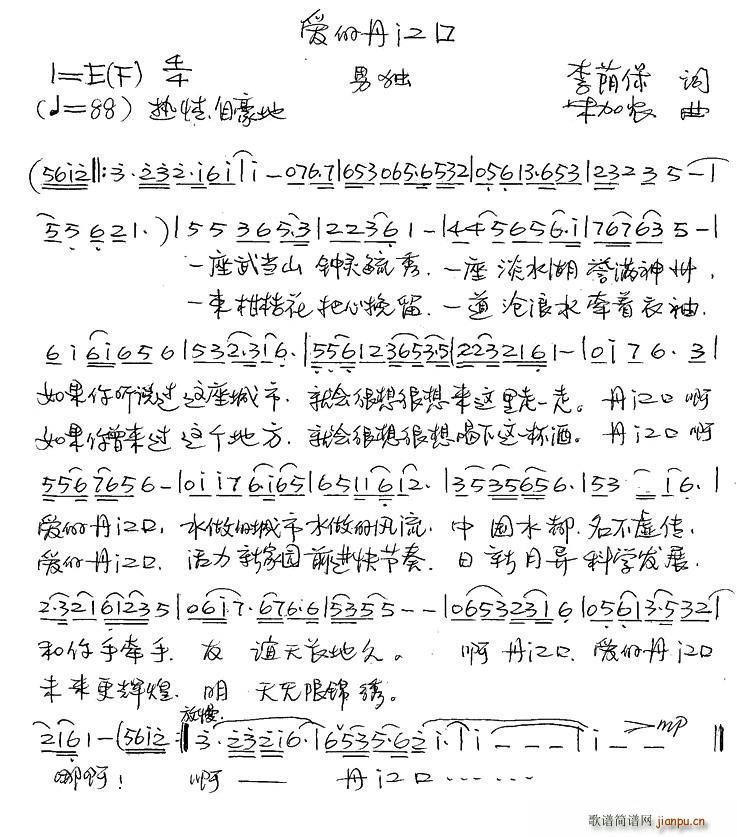 爱的丹江口
1=E(F) 4/4 男独 李荫保 词
(♩=88) 热情、自豪地 朱加农 曲
(56i2‖:3·232·i6ii|i-076·7|653065·6532|05613·653|23235-|
55621·)|553653·3|22361-|4456656·i|767635-|
一座武当山 钟灵毓秀, 一座淡水湖誉满神州,
一束柑桔花把心挽留, 一道沧浪水牵着衣袖,
6i6i656|532·316·|556123653·5|2232161-|0i76·3|
如果你听说过这座城市, 就会很想很想来这里走一走。丹江口啊
如果你曾来过这个地方, 就会很想很想喝下这杯酒。丹江口啊
5567656-|0ii76i65|6511612·|3535656·|53 i6·|
爱的丹江口, 水做的城市水做的风流, 中国水都,名不虚传,
爱的丹江口, 活力新家园前进快节奏, 日新月异科学发展,
2·32161235|06i7·676·6|5355--|0653231 6|05613·532|
和你手牵手, 友谊天长地久。 啊丹江口, 爱的丹江口
未来更辉煌, 明天无限锦绣。
放慢
2i61-(56i2:‖3·232i6·|6535·62i·|i---|i--‖ mp
哪啊! 啊—— 丹江口······
歌谱简谱网 jianpu.cn